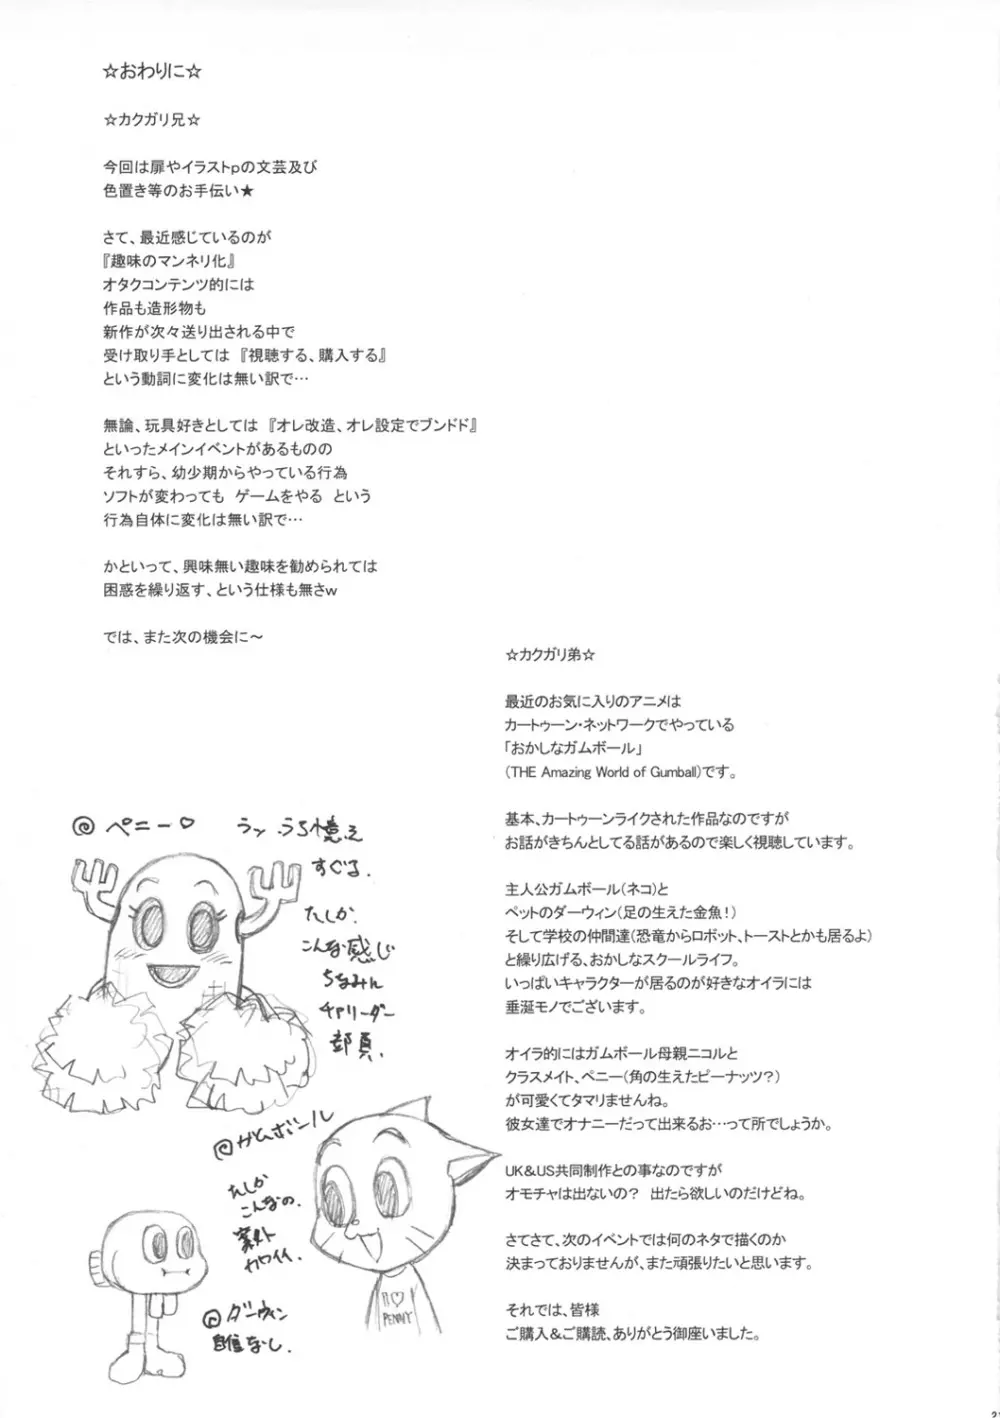 ☆おわりに☆
☆カクガリ兄☆
今回は扉やイラストpの文芸及び
色置き等のお手伝い★
さて、最近感じているのが
『趣味のマンネリ化』
オタクコンテンツ的には
作品も造形物も
新作が次々送り出される中で
受け取り手としては『視聴する、購入する』
という動詞に変化は無い訳で…
無論、玩具好きとしては『オレ改造、オレ設定でブンドド』
といったメインイベントがあるものの
それすら、幼少期からやっている行為
ソフトが変わっても ゲームをやる という
行為自体に変化は無い訳で…
かといって、興味無い趣味を勧められては
困惑を繰り返す、という仕様も無さw
では、また次の機会に～
☆カクガリ弟☆
最近のお気に入りのアニメは
カートゥーン・ネットワークでやっている
「おかしなガムボール」
(THE Amazing World of Gumball)です。
基本、カートゥーンライクされた作品なのですが
お話がきちんとしてる話があるので楽しく視聴しています。
主人公ガムボール(ネコ)と
ペットのダーウィン(足の生えた金魚！)
そして学校の仲間達(恐竜からロボット、トーストとかも居るよ)
と繰り広げる、おかしなスクールライフ。
いっぱいキャラクターが居るのが好きなオイラには
垂涎モノでございます。
オイラ的にはガムボール母親ニコルと
クラスメイト、ペニー(角の生えたピーナッツ？)
が可愛くてタマリませんね。
彼女達でオナニーだって出来るお…って所でしょうか。
UK&US共同制作との事なのですが
オモチャは出ないの？ 出たら欲しいのだけどね。
さてさて、次のイベントでは何のネタで描くのか
決まっておりませんが、また頑張りたいと思います。
それでは、皆様
ご購入&ご購読、ありがとう御座いました。
@ペニー♡
うろ憶え
すぐる.
たしか.
こんな感じ
ちなみに
チアリーダー
部員.
@ガムボール
たしか
こんなの.
案外
カワイイ.
@ダーウィン
自信なし.
I♡
PENNY